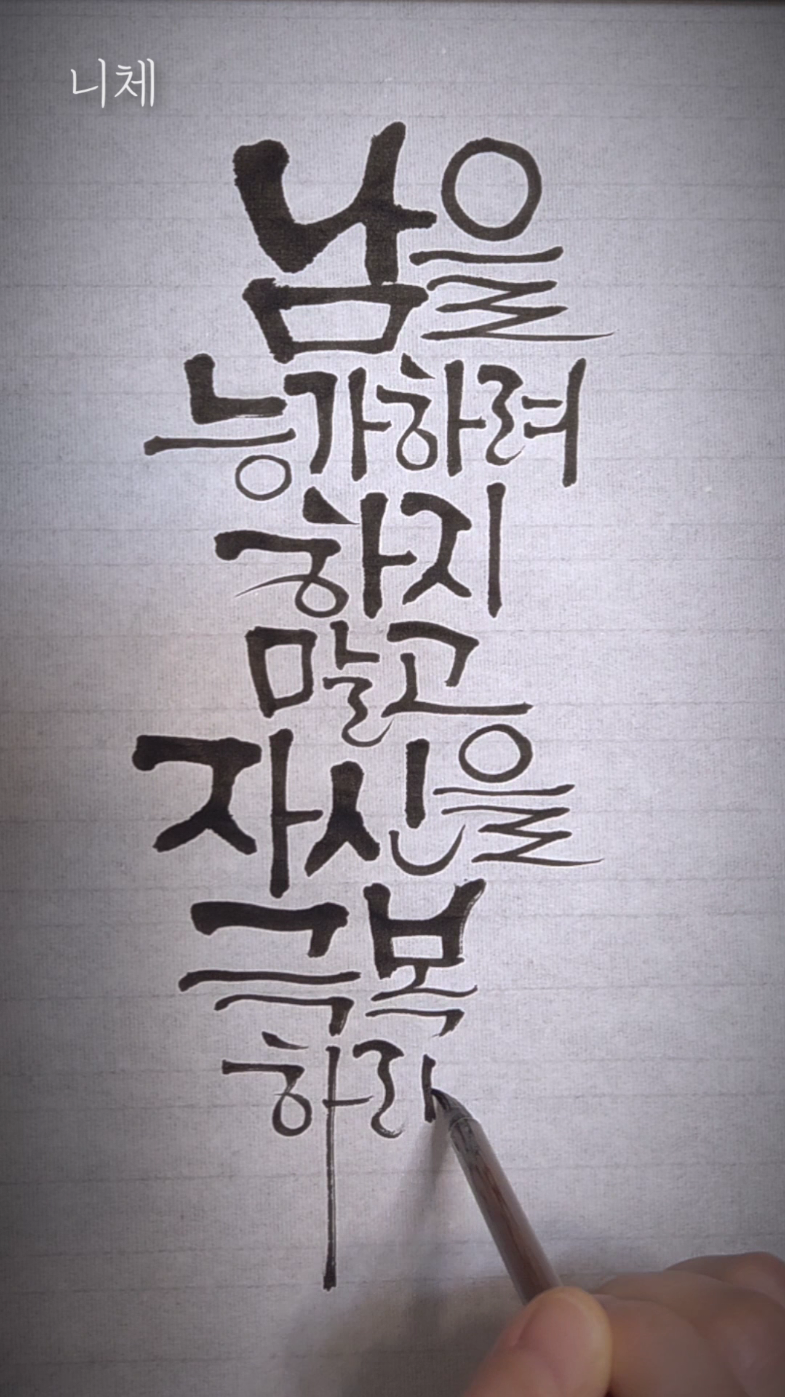 니체
남을
능가하려
하지
말고
자신을
극복
하라